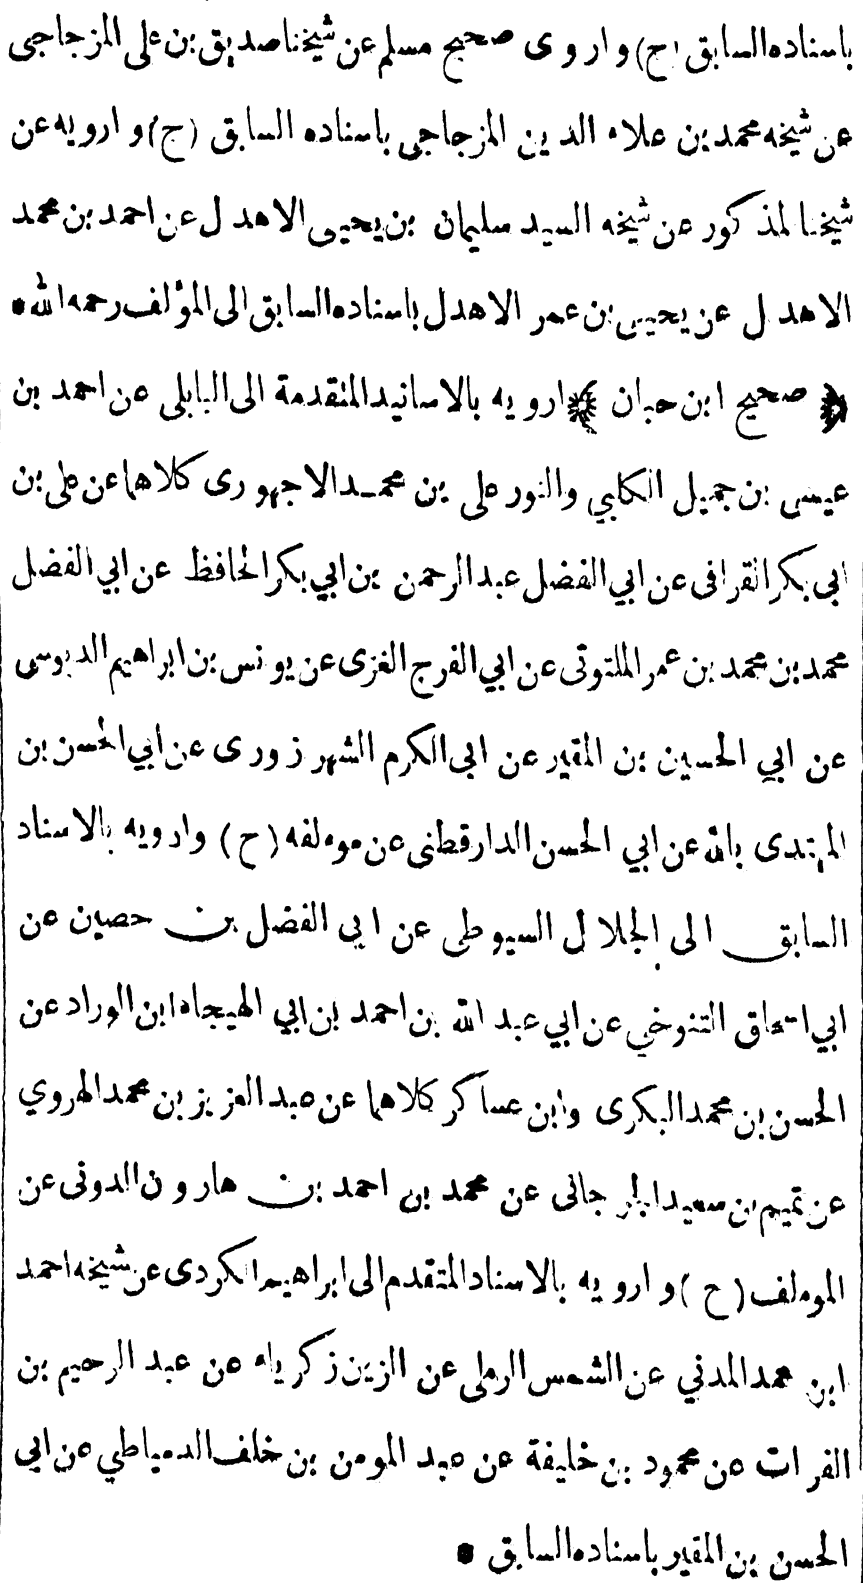 باسناده السابق (ح) واروى صحيح مسلم عن شيخنا صديق بن علي المزجاجي
عن شيخه محمد بن علاء الدين المزجاجي باسناده السابق (ح) وارويه عن
شيخنا لمذكور عن شيخه السيد سليمان بن يحيى الاهدل عن احمد بن محمد
الاهدل عن يحيى بن عمر الاهدل باسناده السابق الى المؤلف رحمه الله *
﴿ صحيح ابن حبان ﴾ ارويه بالاسانيد المتقدمة الى البابلى عن احمد بن
عيسى بن جميل الكلبي والنور على بن محمد الاجهورى كلاهما عن على بن
ابى بكر القرافى عن ابي الفضل عبد الرحمن بن ابي بكر الحافظ عن ابي الفضل
محمد بن محمد بن عمر الملتوتى عن ابي الفرج الغزى عن يونس بن ابراهيم الدبوسى
عن ابي الحسين بن المقير عن ابى الكرم الشهرزورى عن ابي الحسن بن
المهتدى بالله عن ابي الحسن الدارقطنى عن موءلفه (ح) وارويه بالاسناد
السابق الى الجلال السيوطى عن ابي الفضل بن حصين عن
ابي اسحاق التنوخي عن ابي عبد الله بن احمد بن ابي الهيجاء ابن الوراد عن
الحسن بن محمد البكرى وابن عساكر كلاهما عن عبد العزيز بن محمد الهروي
عن تميم بن سعيد الجرجانى عن محمد بن احمد بن هارون الدونى عن
الموءلف (ح) وارويه بالاسناد المتقدم الى ابراهيم الكردى عن شيخه احمد
ابن محمد المدني عن الشمس الرملى عن الزين زكرياء عن عبد الرحيم بن
الفرات عن محمود بن خليفة عن عبد المومن بن خلف الدمياطي عن ابى
الحسن بن المقير باسناده السابق *